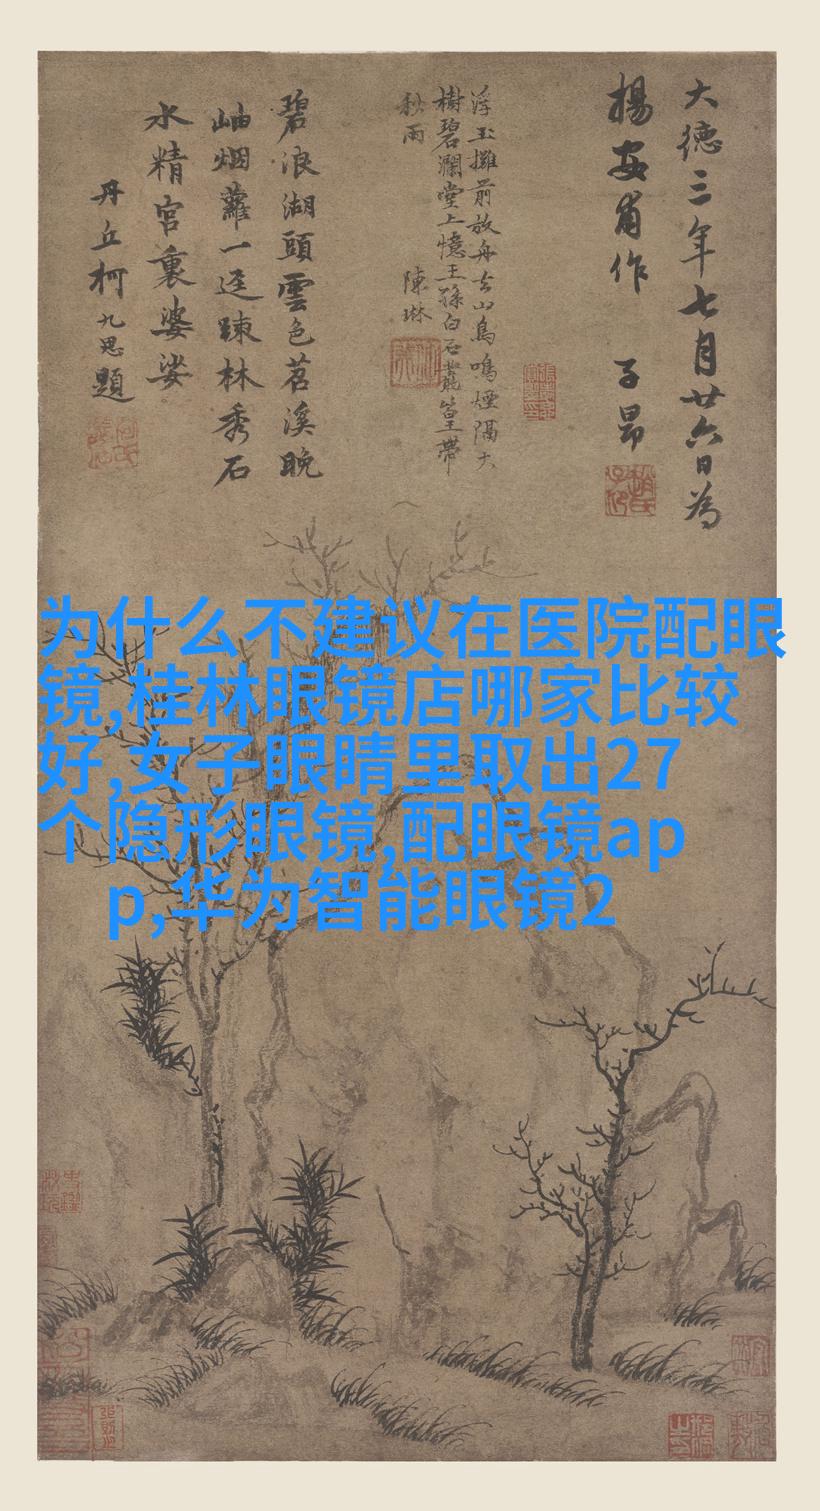 大德三年七月廿六日為
楊安甫作 子昂
浮玉攤前放舟去山鳥鳴煙隔大
樹碧瀾堂上憶王孫白石叢篁帶
秋雨 陳琳
碧浪湖頭雲色茗溪晚
岫烟蘿一逕踈林秀石
水精宫裏婆娑
丹丘柯九思題
为什么不建议在医院配眼
镜,桂林眼镜店哪家比较
好,女子眼睛里取出27
个隐形眼镜,配眼镜ap
p,华为智能眼镜2